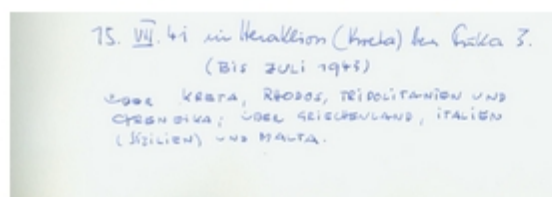 15. VII. 41 in Heraklion (Kreta) bei Wüka 3.
(BIS JULI 1943)
ÜBER KRETA, RHODOS, TRIPOLITANIEN UND
CYRENEIKA; ÜBER GRIECHENLAND, ITALIEN
(SIZILIEN) UND MALTA.